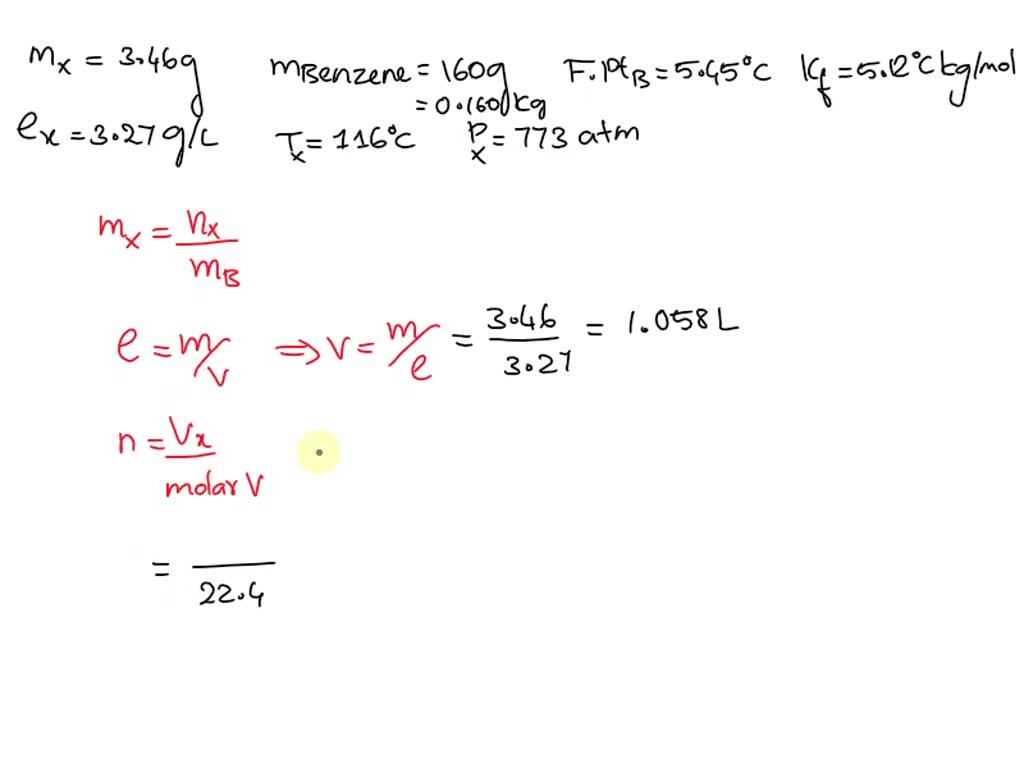 mx = 3.46g mBenzene = 160g F.PtB = 5.45°C Kf = 5.12°C kg/mol
= 0.160 kg
ex = 3.27 g/L Tx = 116°C Px = 773 atm
mx = nx / mB
e = m/v ⇒ v = m/e = 3.46 / 3.27 = 1.058 L
n = Vx / molar V
= 22.4